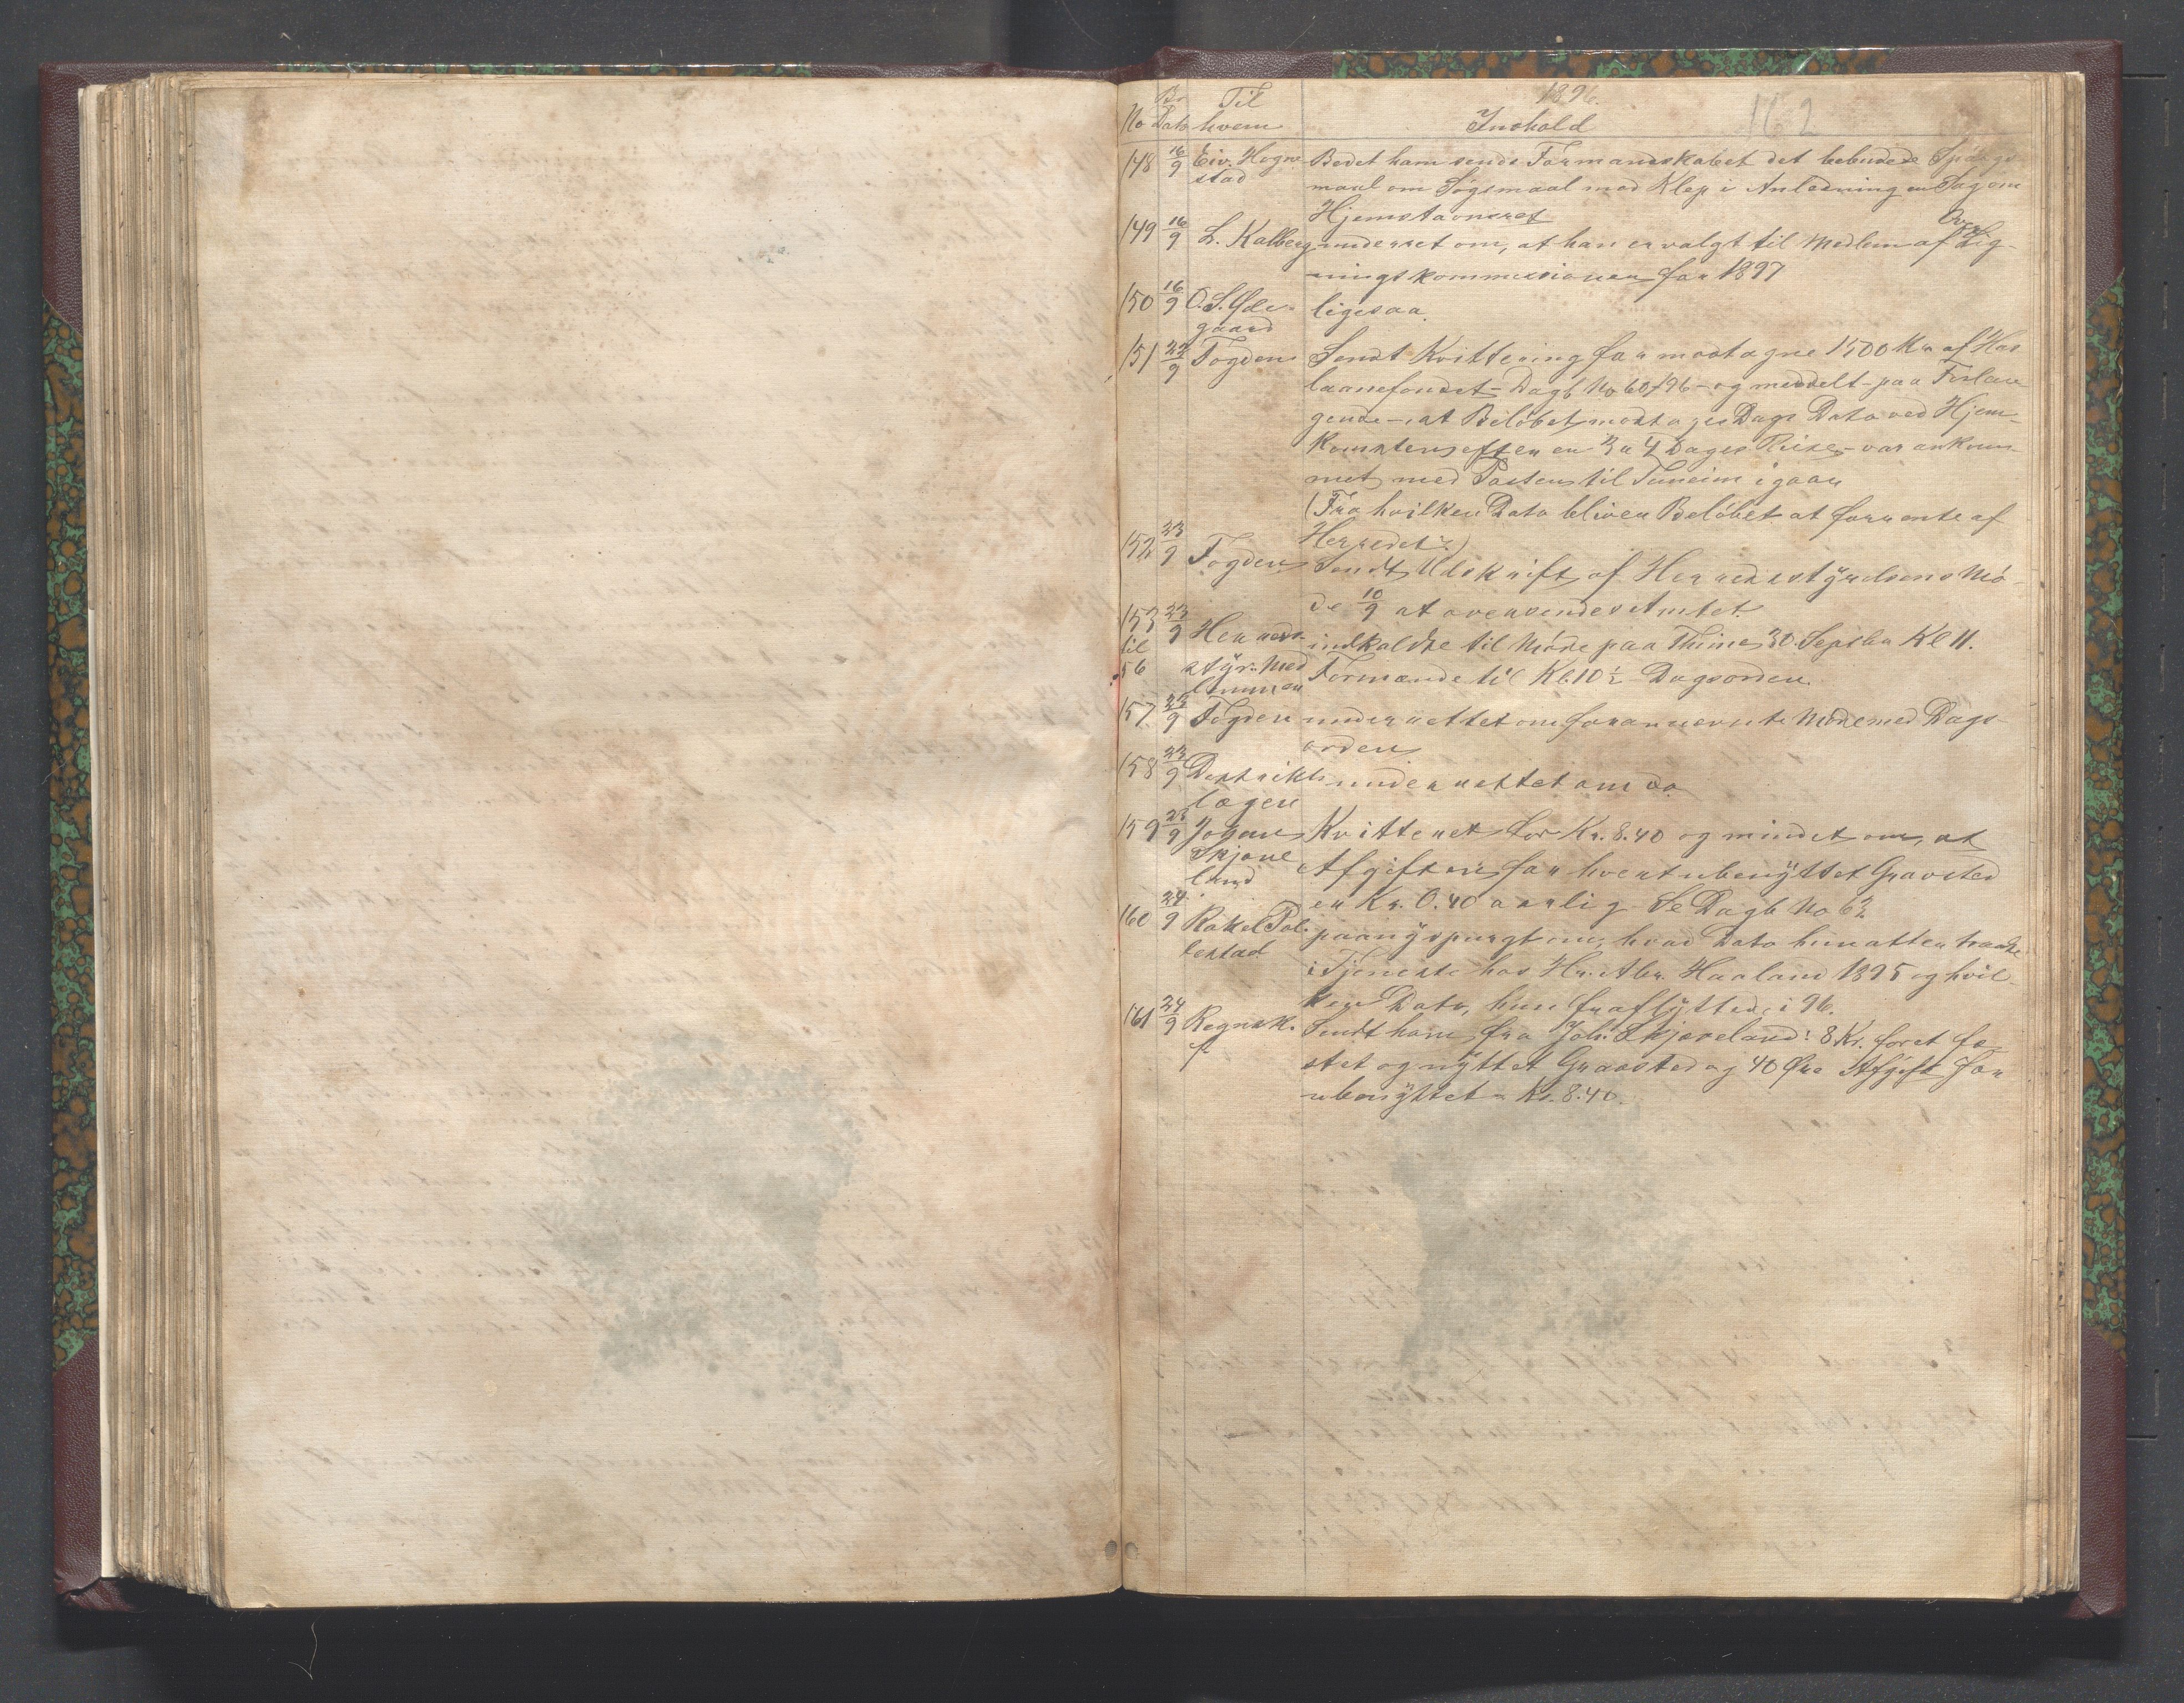 1896.
162
Br
Til
No Dato hvem Inohold
148 16/9 Eiv. Hogne- Bedet ham sende Formandskabet det bebudede Spörgs
stad maal om Søgsmaal mod Klep i Anledning en Sag om
Hjemstaonsret
149 16/9 L. Kalberg underret om, at han er valgt til Medlem af Lig-
Over
ningskommissionen for 1897
150 16/9 O. S. Øde- ligesaa.
gaard
151 22/9 Fogden Sendt Kvittering for modtagne 1500 Kr af Hav
laanefondet - Dagb No 60/96 - og meddelt - paa Forlan
gende -, at Belöbet, modtages Dags Dato ved Hjem-
komsten efter en 3 a 4 Dages Reise - var ankom-
met med Posten til Tuneim igaar
(Fra hvilken Dato bliver Belöbet at forrente af
Herredet?)
152 23/9 Fogden Sendt Udskrift af Herredsstyrelsens Mö-
de 10/9 at oversendes Amtet.
153 23/9 Herreds- indkaldte til Möde paa Thime 30. Septbr Kl 11.
til
56 styr. Med Formænde til Kl. 10½ Dagsorden.
lemmer
157 23/9 Fogden underrettet om forannævnte Möde med Dags-
orden
158 23/9 Distrikts underrettet om do.
lægen
159 23/9 Johan Kvitteret for Kr. 8.40 og mindet om, at
Skjæve Afgiften for hvert ubenyttet Gravsted
land er Kr. 0.40 aarlig. Se Dagb No 62
160 24/9 Rakel Pol- paany spurgt om, hvad Dato hun atter traadte
lestad i Tjeneste hos Hr. Abr. Haaland 1895 og hvil-
ken Dato, hun fraflyttede i 96.
161 24/9 Regnsk. Sendt ham fra Joh. Skjæveland: 8 Kr. for et fæ
f. stet og nyttet Gravsted og 40 Øre Afgift for
ubenyttet = Kr. 8.40.